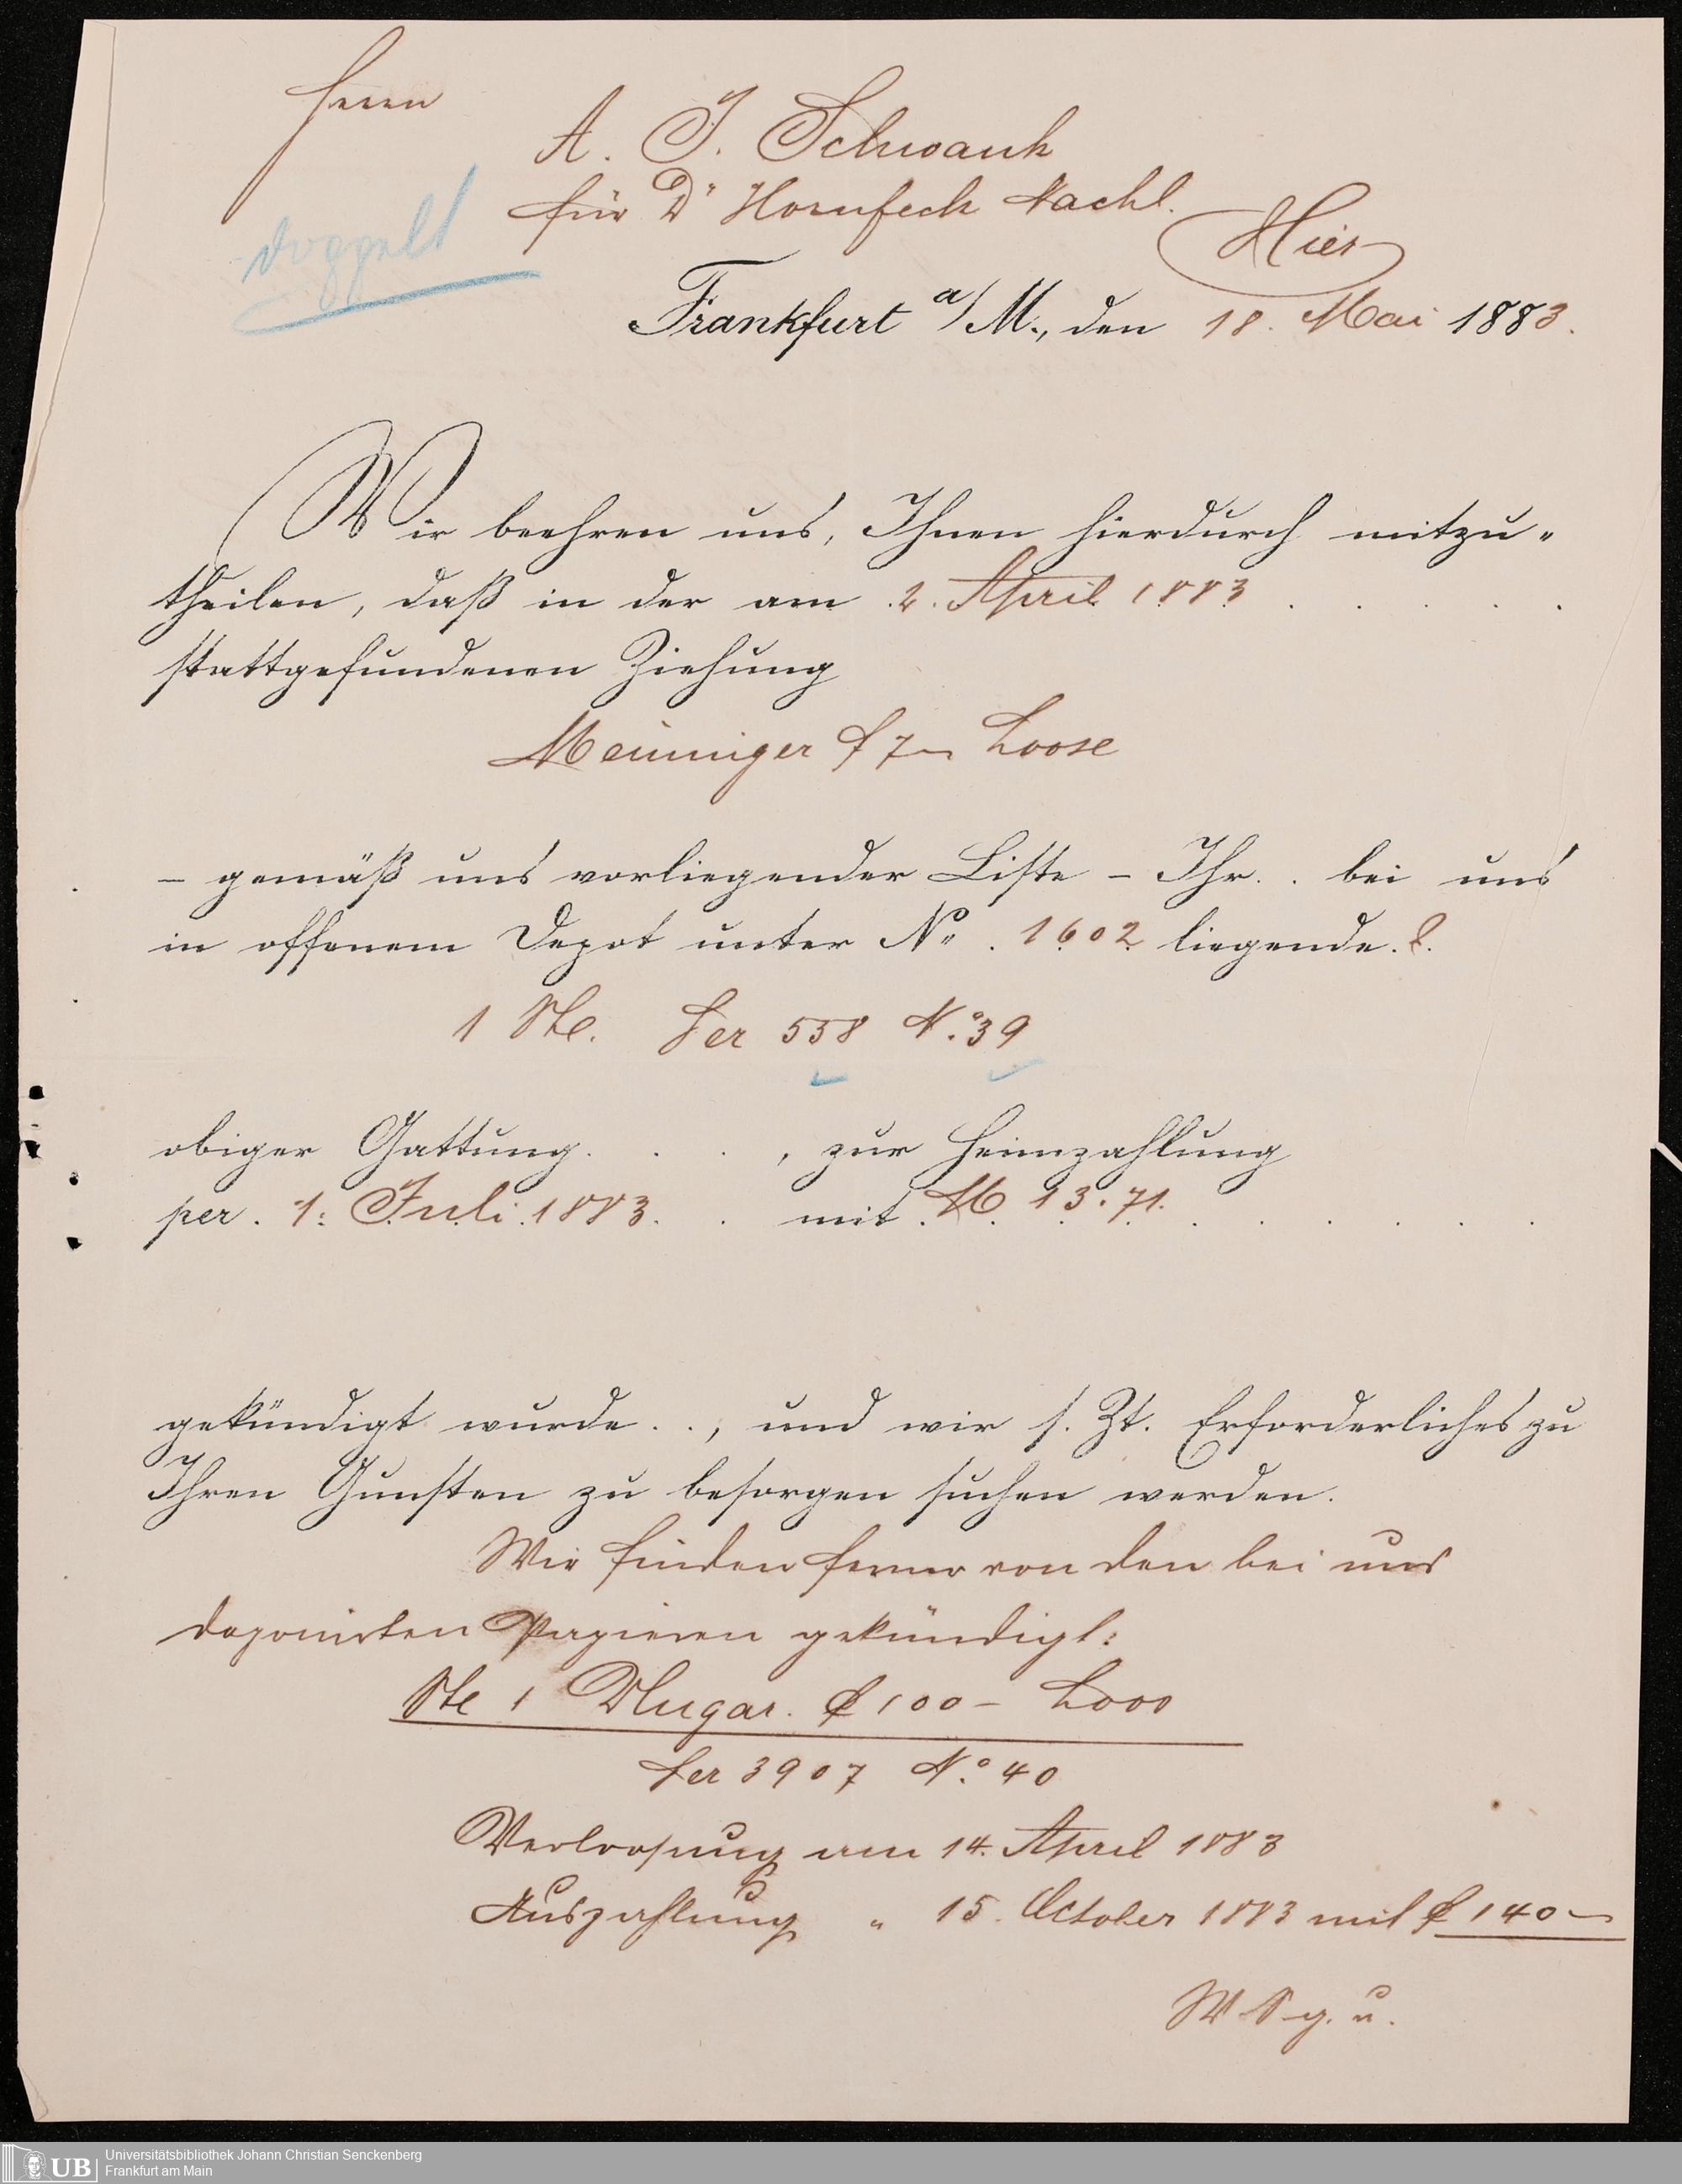 Herrn
A. J. Schwank
für Dr Hornfeck Nachl.
Hier
doppelt
Frankfurt a/M., den 18. Mai 1883.
Wir beehren uns, Ihnen hierdurch mitzu-
theilen, daß in der am 2. April 1883
stattgefundenen Ziehung
Meininger f 7– Loose
– gemäß uns vorliegender Liste – Ihr . . bei uns
in offenem Depot unter No. 1602 liegende.s.
1 Stk. Ser 558 No. 39
obiger Gattung . . . , zur Heimzahlung
per . 1. Juli 1883 . . mit M 13.71.
gekündigt wurde . . , und wir s. Zt. Erforderliches zu
Ihren Gunsten zu besorgen suchen werden.
Wir finden ferner von den bei uns
deponirten Papieren gekündigt:
Stk 1 Ungar. f 100– Loos
Ser 3907 No. 40
Verloosung am 14. April 1883
Auszahlung " 15. October 1883 mit f 140–
Universitätsbibliothek Johann Christian Senckenberg
Frankfurt am Main
UB